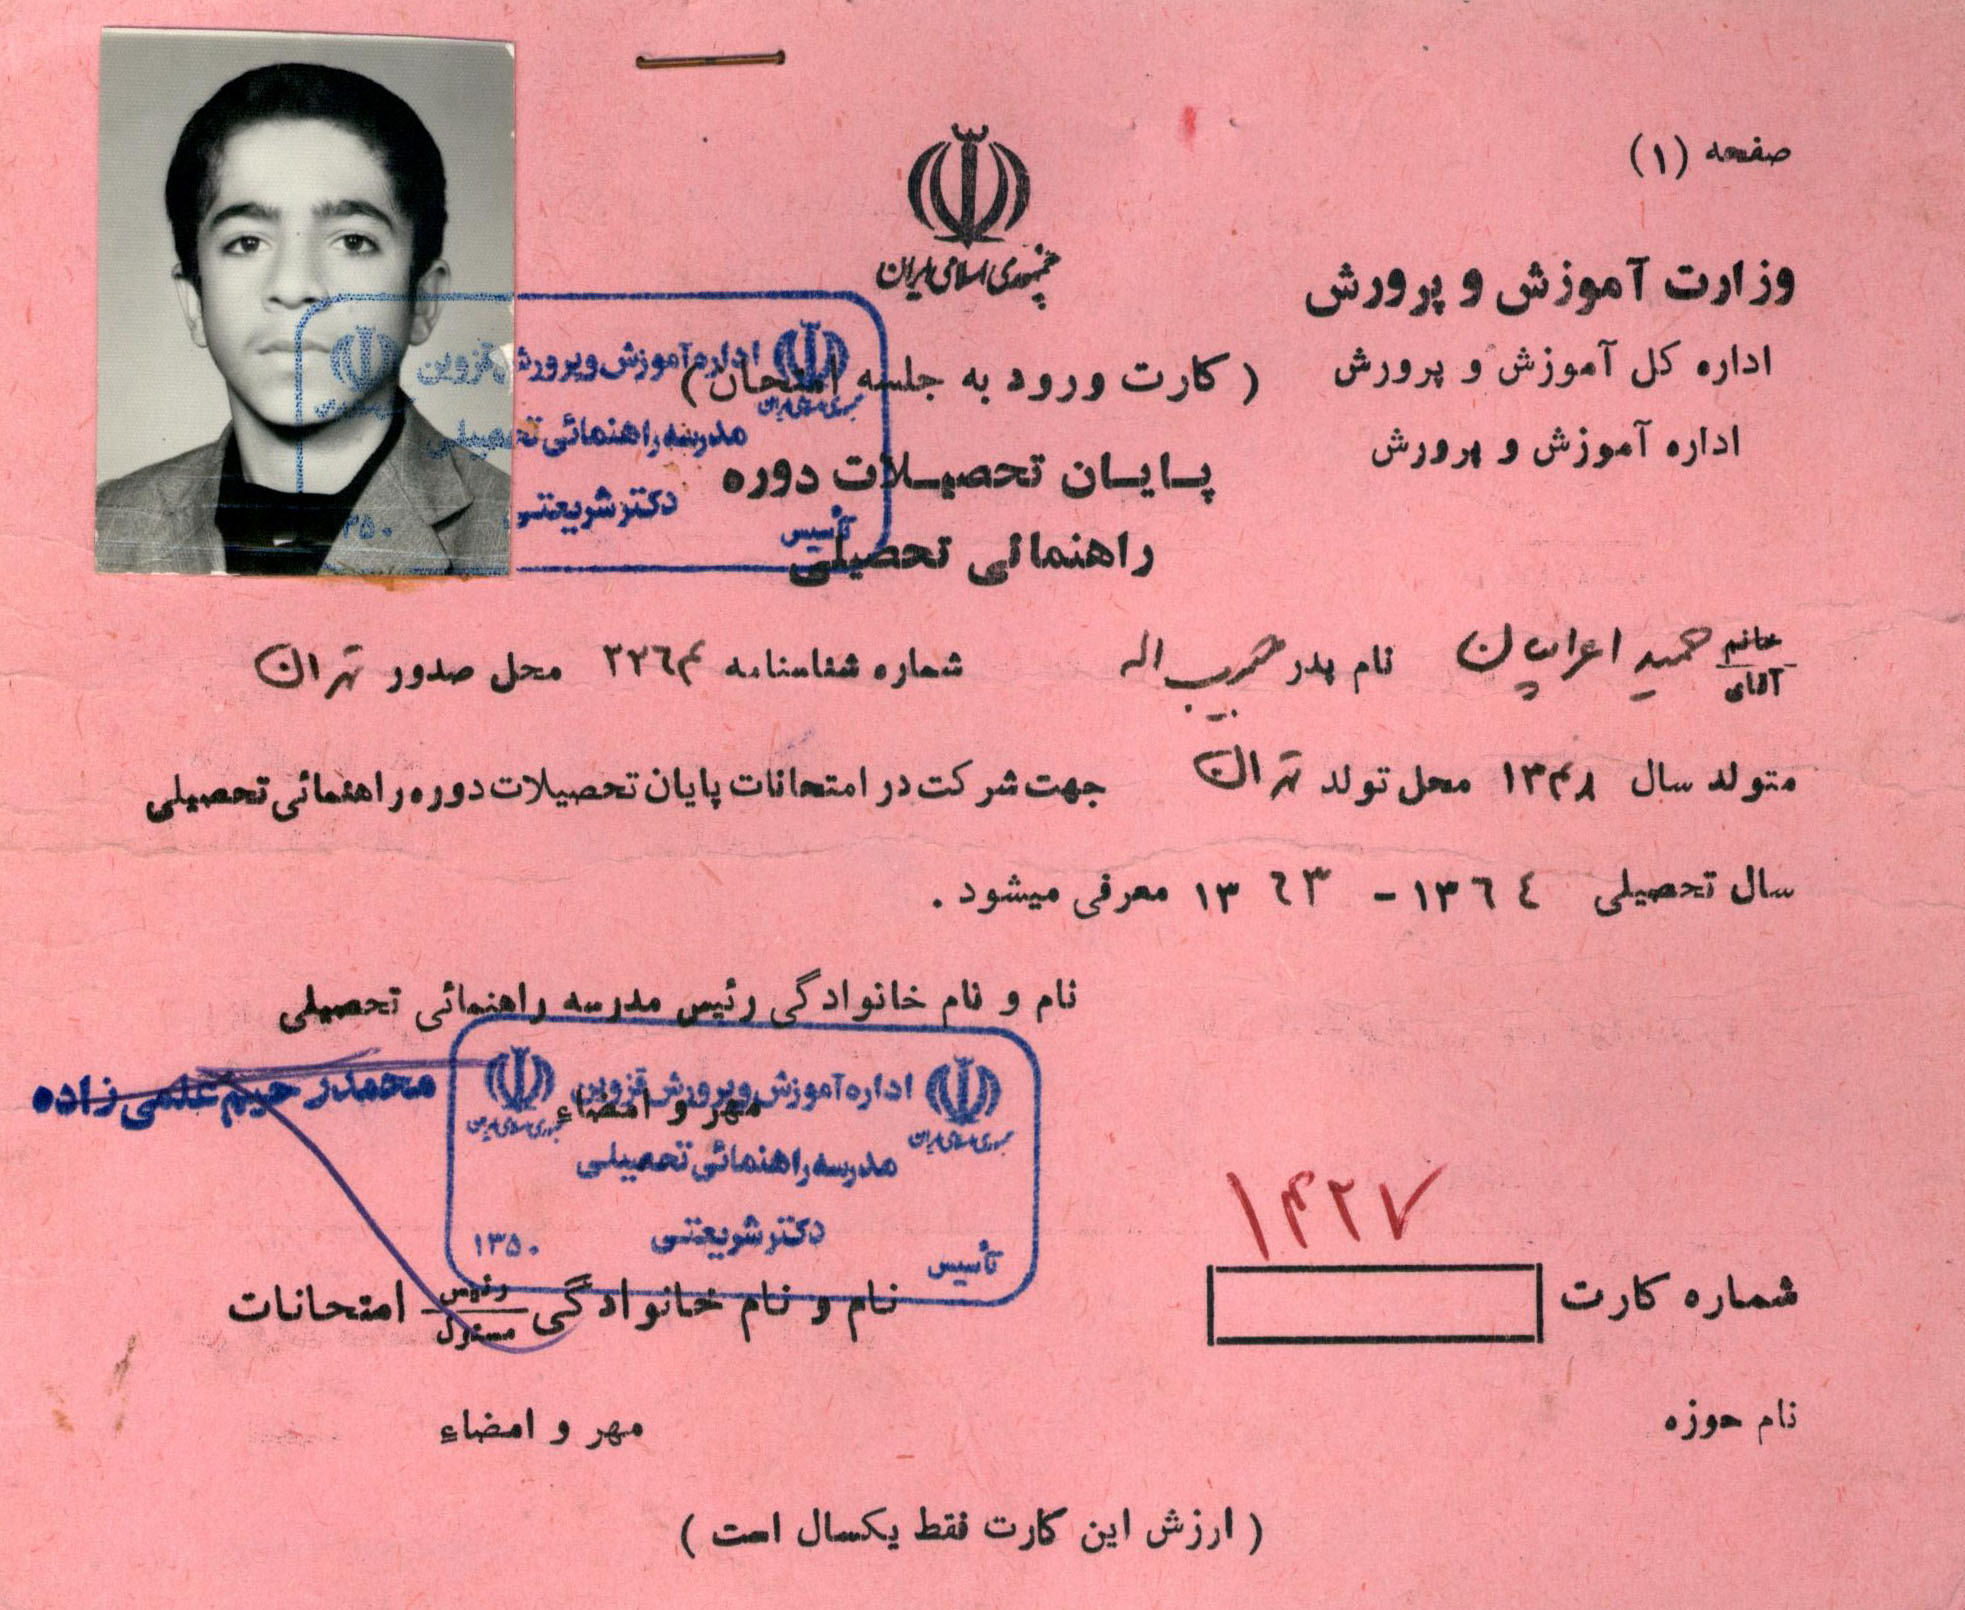 صفحه (۱)
جمهوری اسلامی ایران
وزارت آموزش و پرورش
اداره کل آموزش و پرورش
اداره آموزش و پرورش
(کارت ورود به جلسه امتحان)
پایان تحصیلات دوره
راهنمائی تحصیلی
اداره آموزش و پرورش قزوین
جمهوری اسلامی ایران
مدرسه راهنمائی تحصیلی
دکتر شریعتی
تأسیس ۳۵۰
خانم آقای حمید اعرابیان نام پدر حبیب اله شماره شناسنامه ۲۲۶۴ محل صدور تهران
متولد سال ۱۳۴۸ محل تولد تهران جهت شرکت در امتحانات پایان تحصیلات دوره راهنمائی تحصیلی
سال تحصیلی ۱۳۶۴ - ۱۳۶۳ معرفی میشود .
نام و نام خانوادگی رئیس مدرسه راهنمائی تحصیلی
محمدرحیم علمی زاده
مهر و امضاء
اداره آموزش و پرورش قزوین
جمهوری اسلامی ایران
جمهوری اسلامی ایران
مدرسه راهنمائی تحصیلی
دکتر شریعتی
تأسیس ۱۳۵۰
۱۴۲۷
شماره کارت
نام و نام خانوادگی رئیس مسئول امتحانات
نام حوزه
مهر و امضاء
(ارزش این کارت فقط یکسال است)